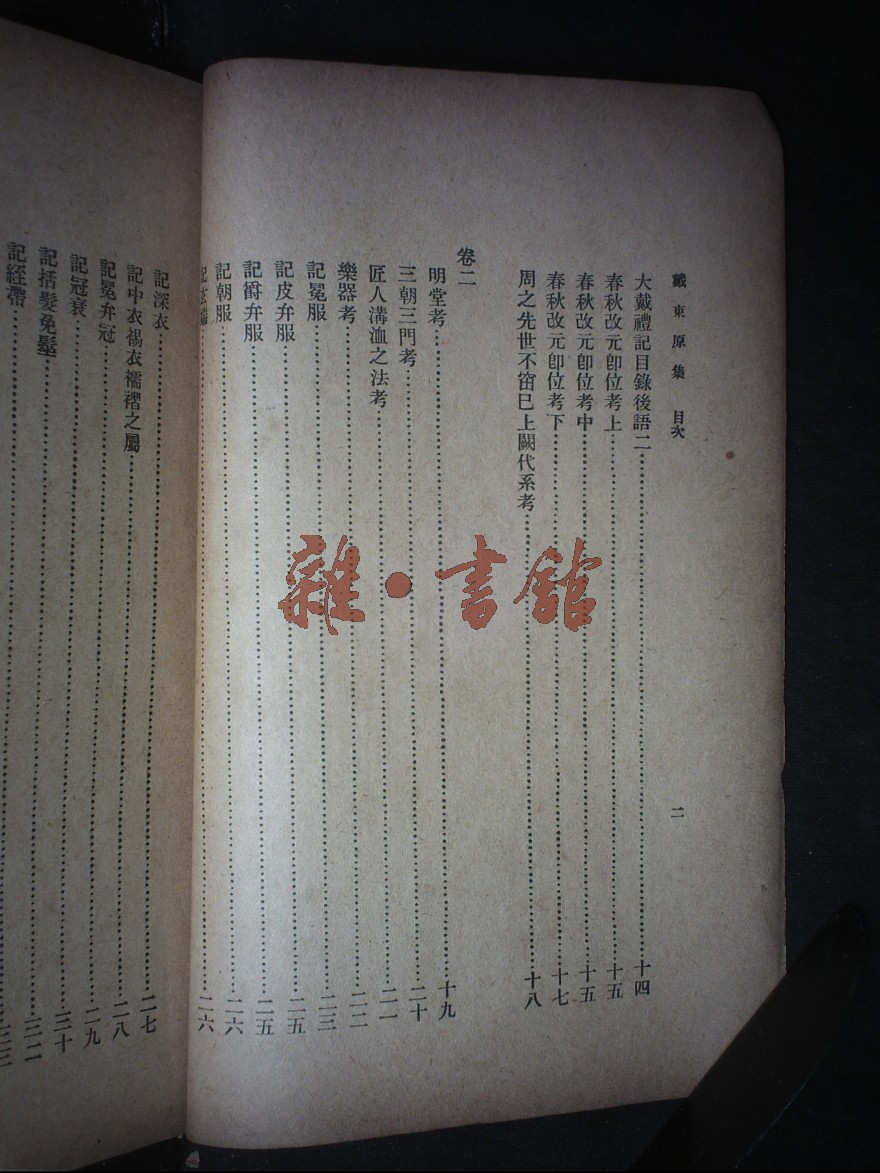 戴東原集 目次 二
大戴禮記目錄後語二……十四
春秋改元卽位考上……十五
春秋改元卽位考中……十五
春秋改元卽位考下……十七
周之先世不窋巳上闕代系考……十八
卷二
明堂考……十九
三朝三門考……二十
匠人溝洫之法考……二一
樂器考……二二
記冕服……二三
記皮弁服……二五
記爵弁服……二五
記朝服……二六
記玄端……二六
記深衣……二七
記中衣裼衣襦褶之屬……二八
記冕弁冠……二九
記冠衰……三十
記括髮免髽……三二
記絰帶……三三
雜·書館